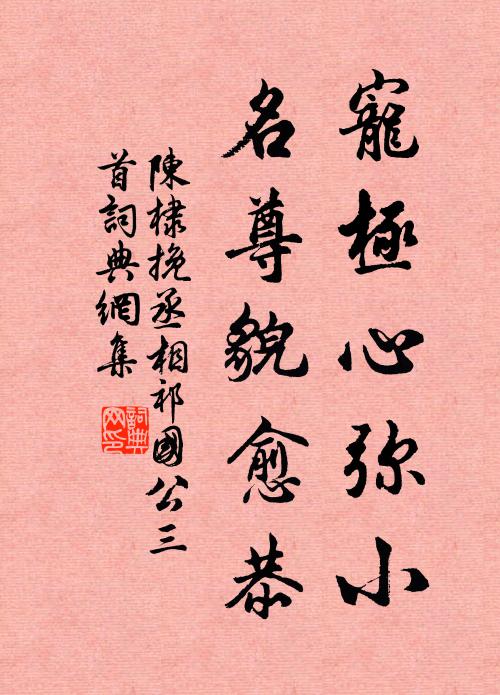 寵極心弥小
名尊貌愈恭
陳棣挽丞相祁國公三
首詞典網集
詞典
网印